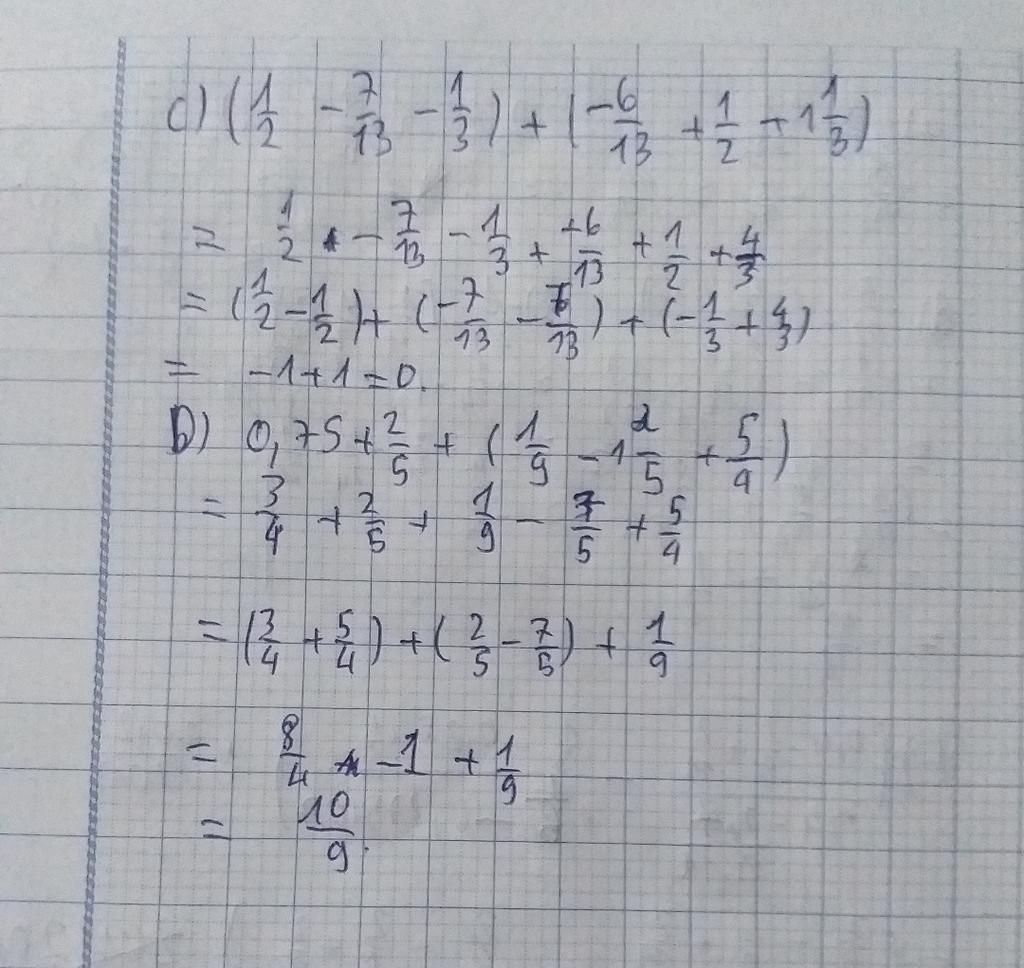 c) (1/2 - 7/13 - 1/3) + (-6/13 + 1/2 + 1 1/3)
= 1/2 - 7/13 - 1/3 + -6/13 + 1/2 + 4/3
= (1/2 - 1/2) + (-7/13 - 6/13) + (-1/3 + 4/3)
= -1 + 1 = 0.
D) 0,75 + 2/5 + (1/9 - 1 2/5 + 5/4)
= 3/4 + 2/5 + 1/9 - 7/5 + 5/4
= (3/4 + 5/4) + (2/5 - 7/5) + 1/9
= 8/4 - 1 + 1/9
= 10/9.